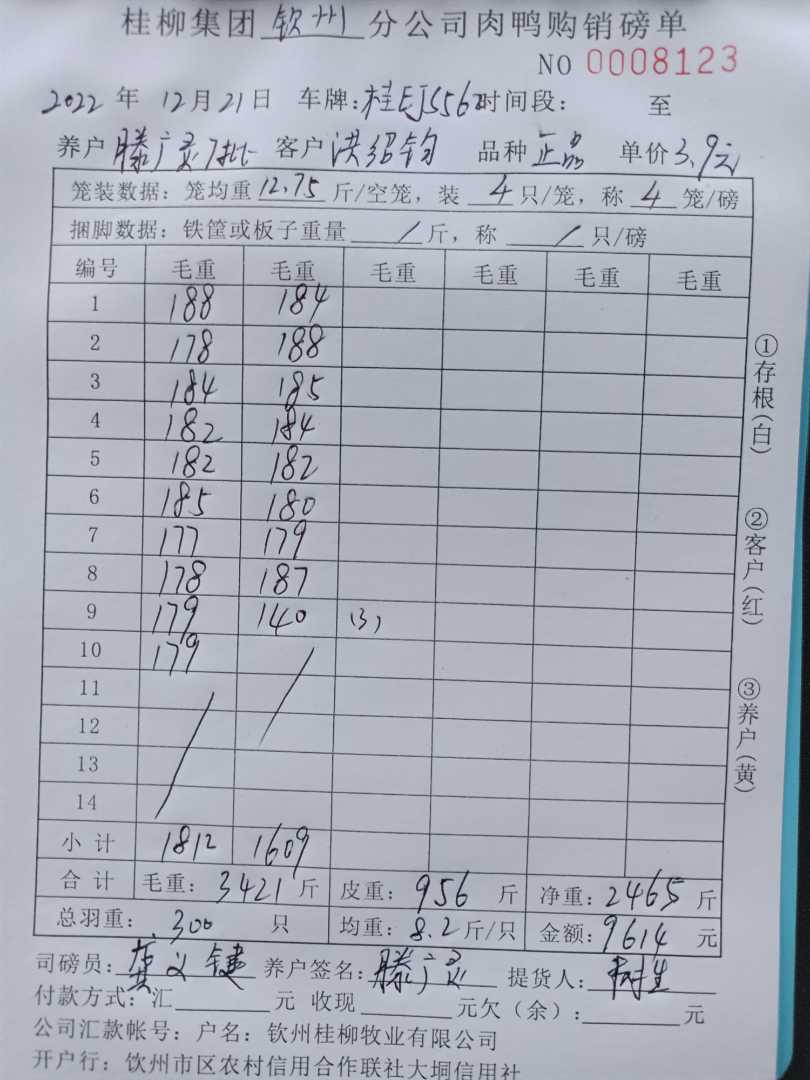 桂柳集团 钦州 分公司肉鸭购销磅单
NO 0008123
2022 年 12月21日 车牌:桂EJS562时间段: 至
养户 滕广灵7批 客户 洪绍钧 品种 正品 单价3.9元
笼装数据: 笼均重 12.75 斤/空笼，装 4 只/笼，称 4 笼/磅
捆脚数据: 铁筐或板子重量 / 斤，称 / 只/磅
编号 毛重 毛重 毛重 毛重 毛重 毛重
1 188 184
2 178 188
3 184 185
4 182 184
5 182 182
6 185 180
7 177 179
8 178 187
9 179 140 (3)
10 179
11
12
13
14
小 计 1812 1609
合 计 毛重: 3421 斤 皮重: 956 斤 净重: 2465 斤
总羽重: 300 只 均重: 8.2 斤/只 金额: 9614 元
司磅员: 龚义键 养户签名: 滕广灵 提货人:
付款方式: 汇 元 收现 元欠（余）: 元
公司汇款帐号: 户名: 钦州桂柳牧业有限公司
开户行: 钦州市区农村信用合作联社大垌信用社
①存根(白)
②客户(红)
③养户(黄)